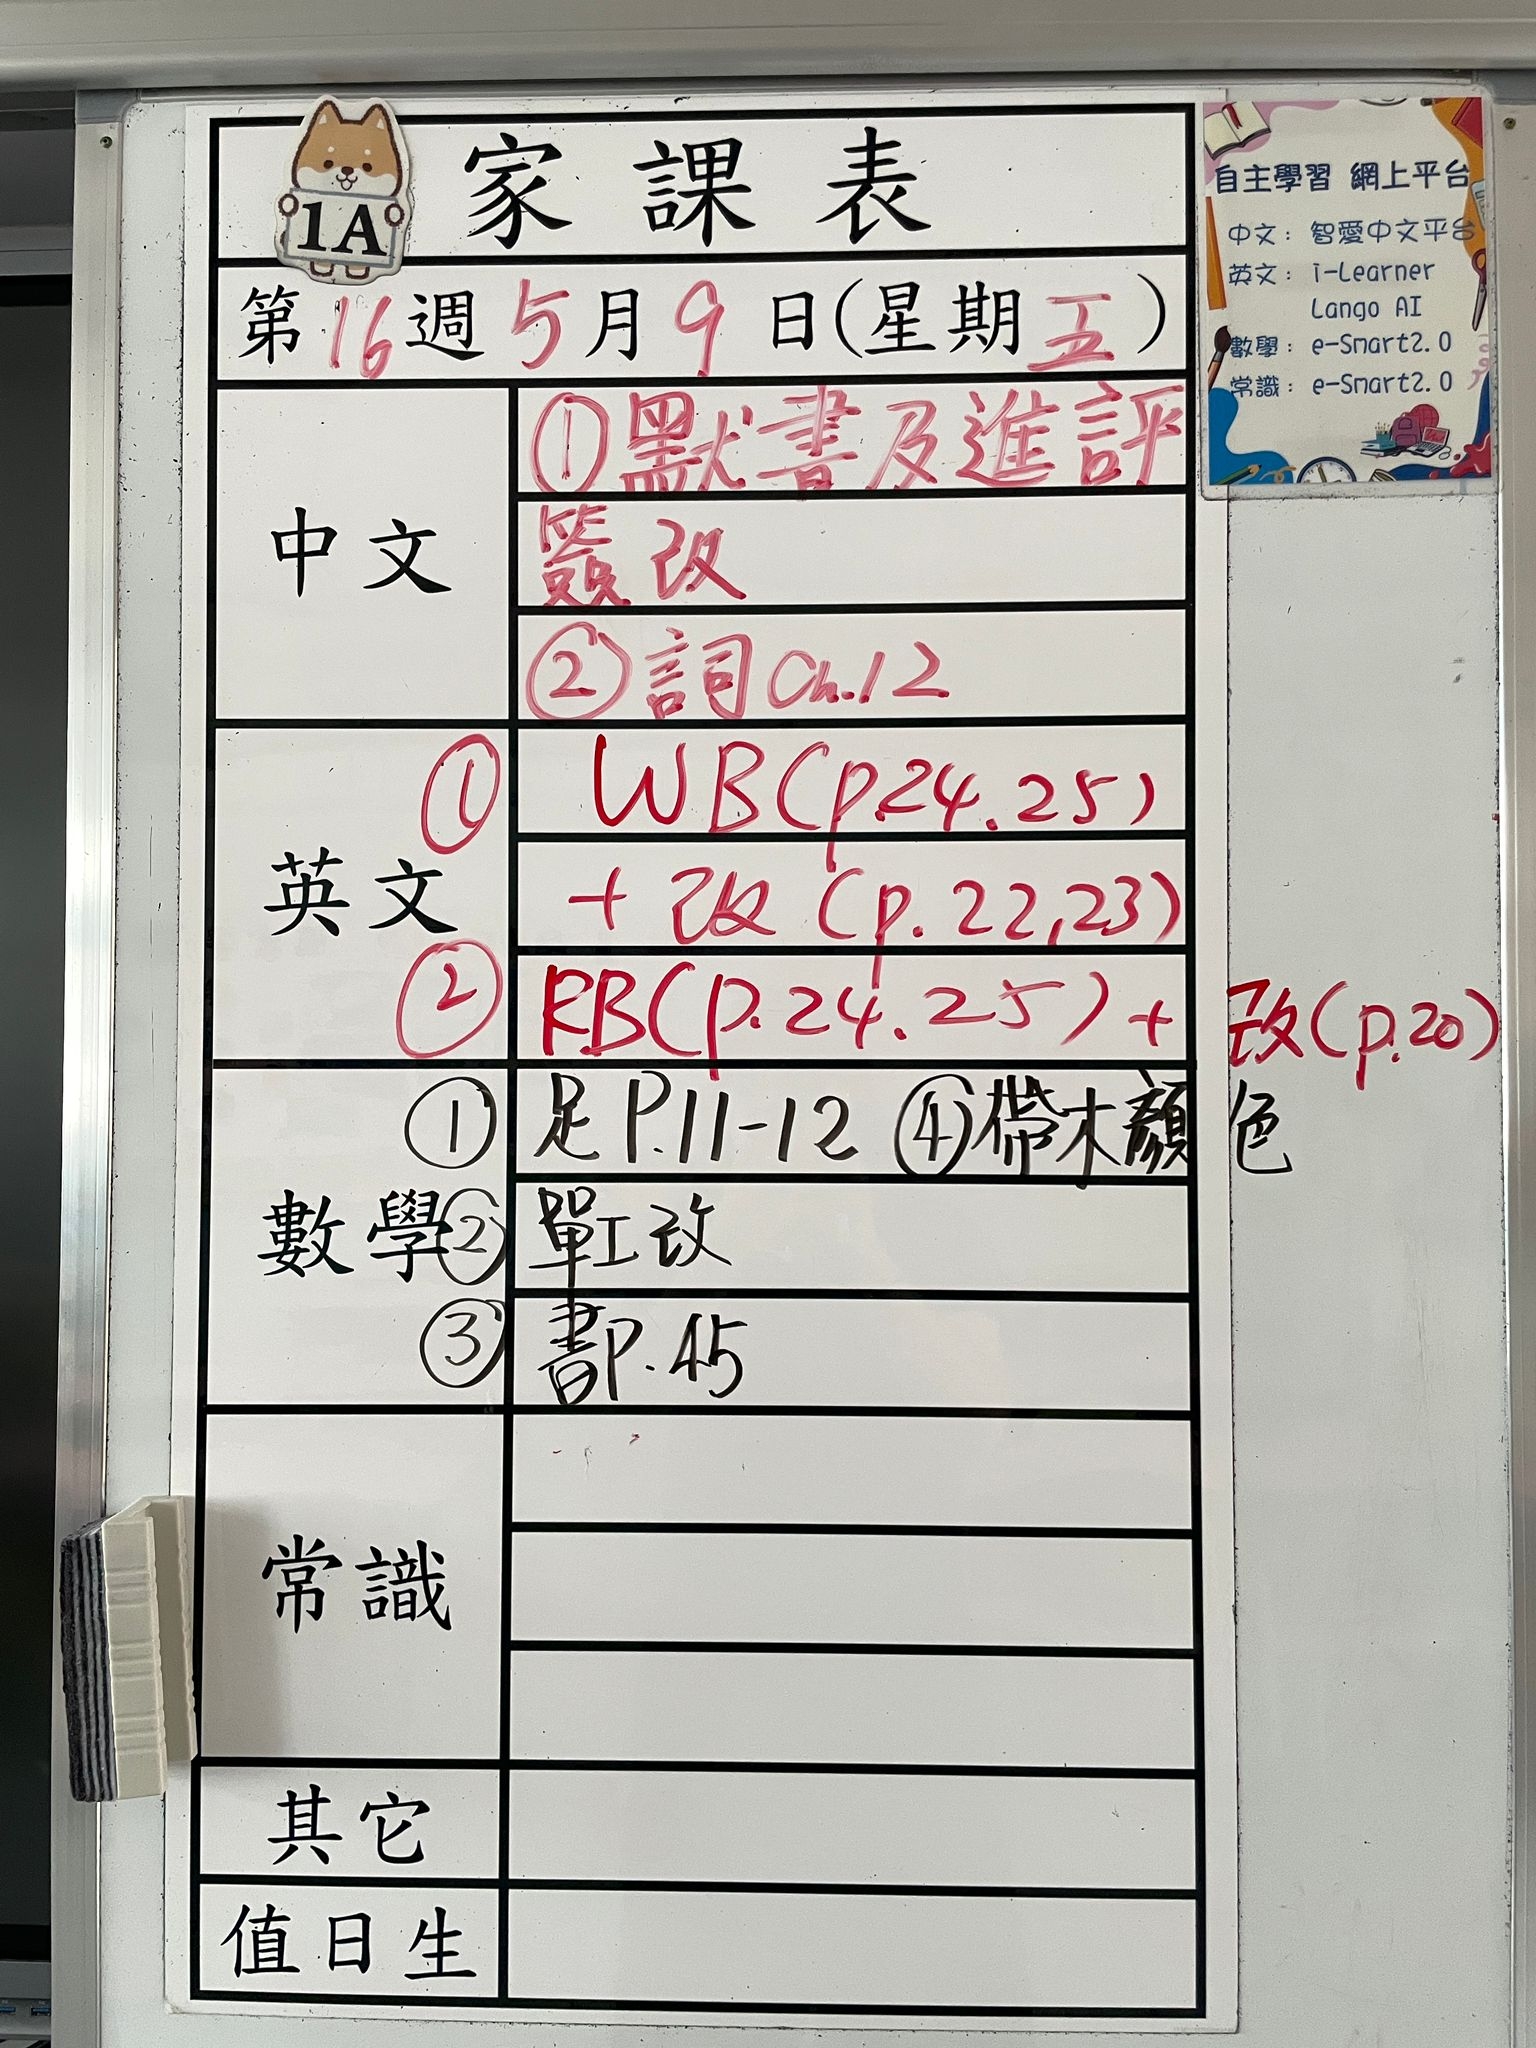 1A
家課表
第16週5月9日(星期五)
中文
①默書及進評
簽改
②詞Ch.12
英文
① WB(p.24.25)
+改(p.22,23)
② RB(p.24.25)+改(p.20)
數學
① 足P.11-12 ④帶木顏色
② 單工改
③ 書P.45
常識
其它
值日生
自主學習 網上平台
中文：智愛中文平台
英文：i-Learner
Lango AI
數學：e-Smart2.0
常識：e-Smart2.0